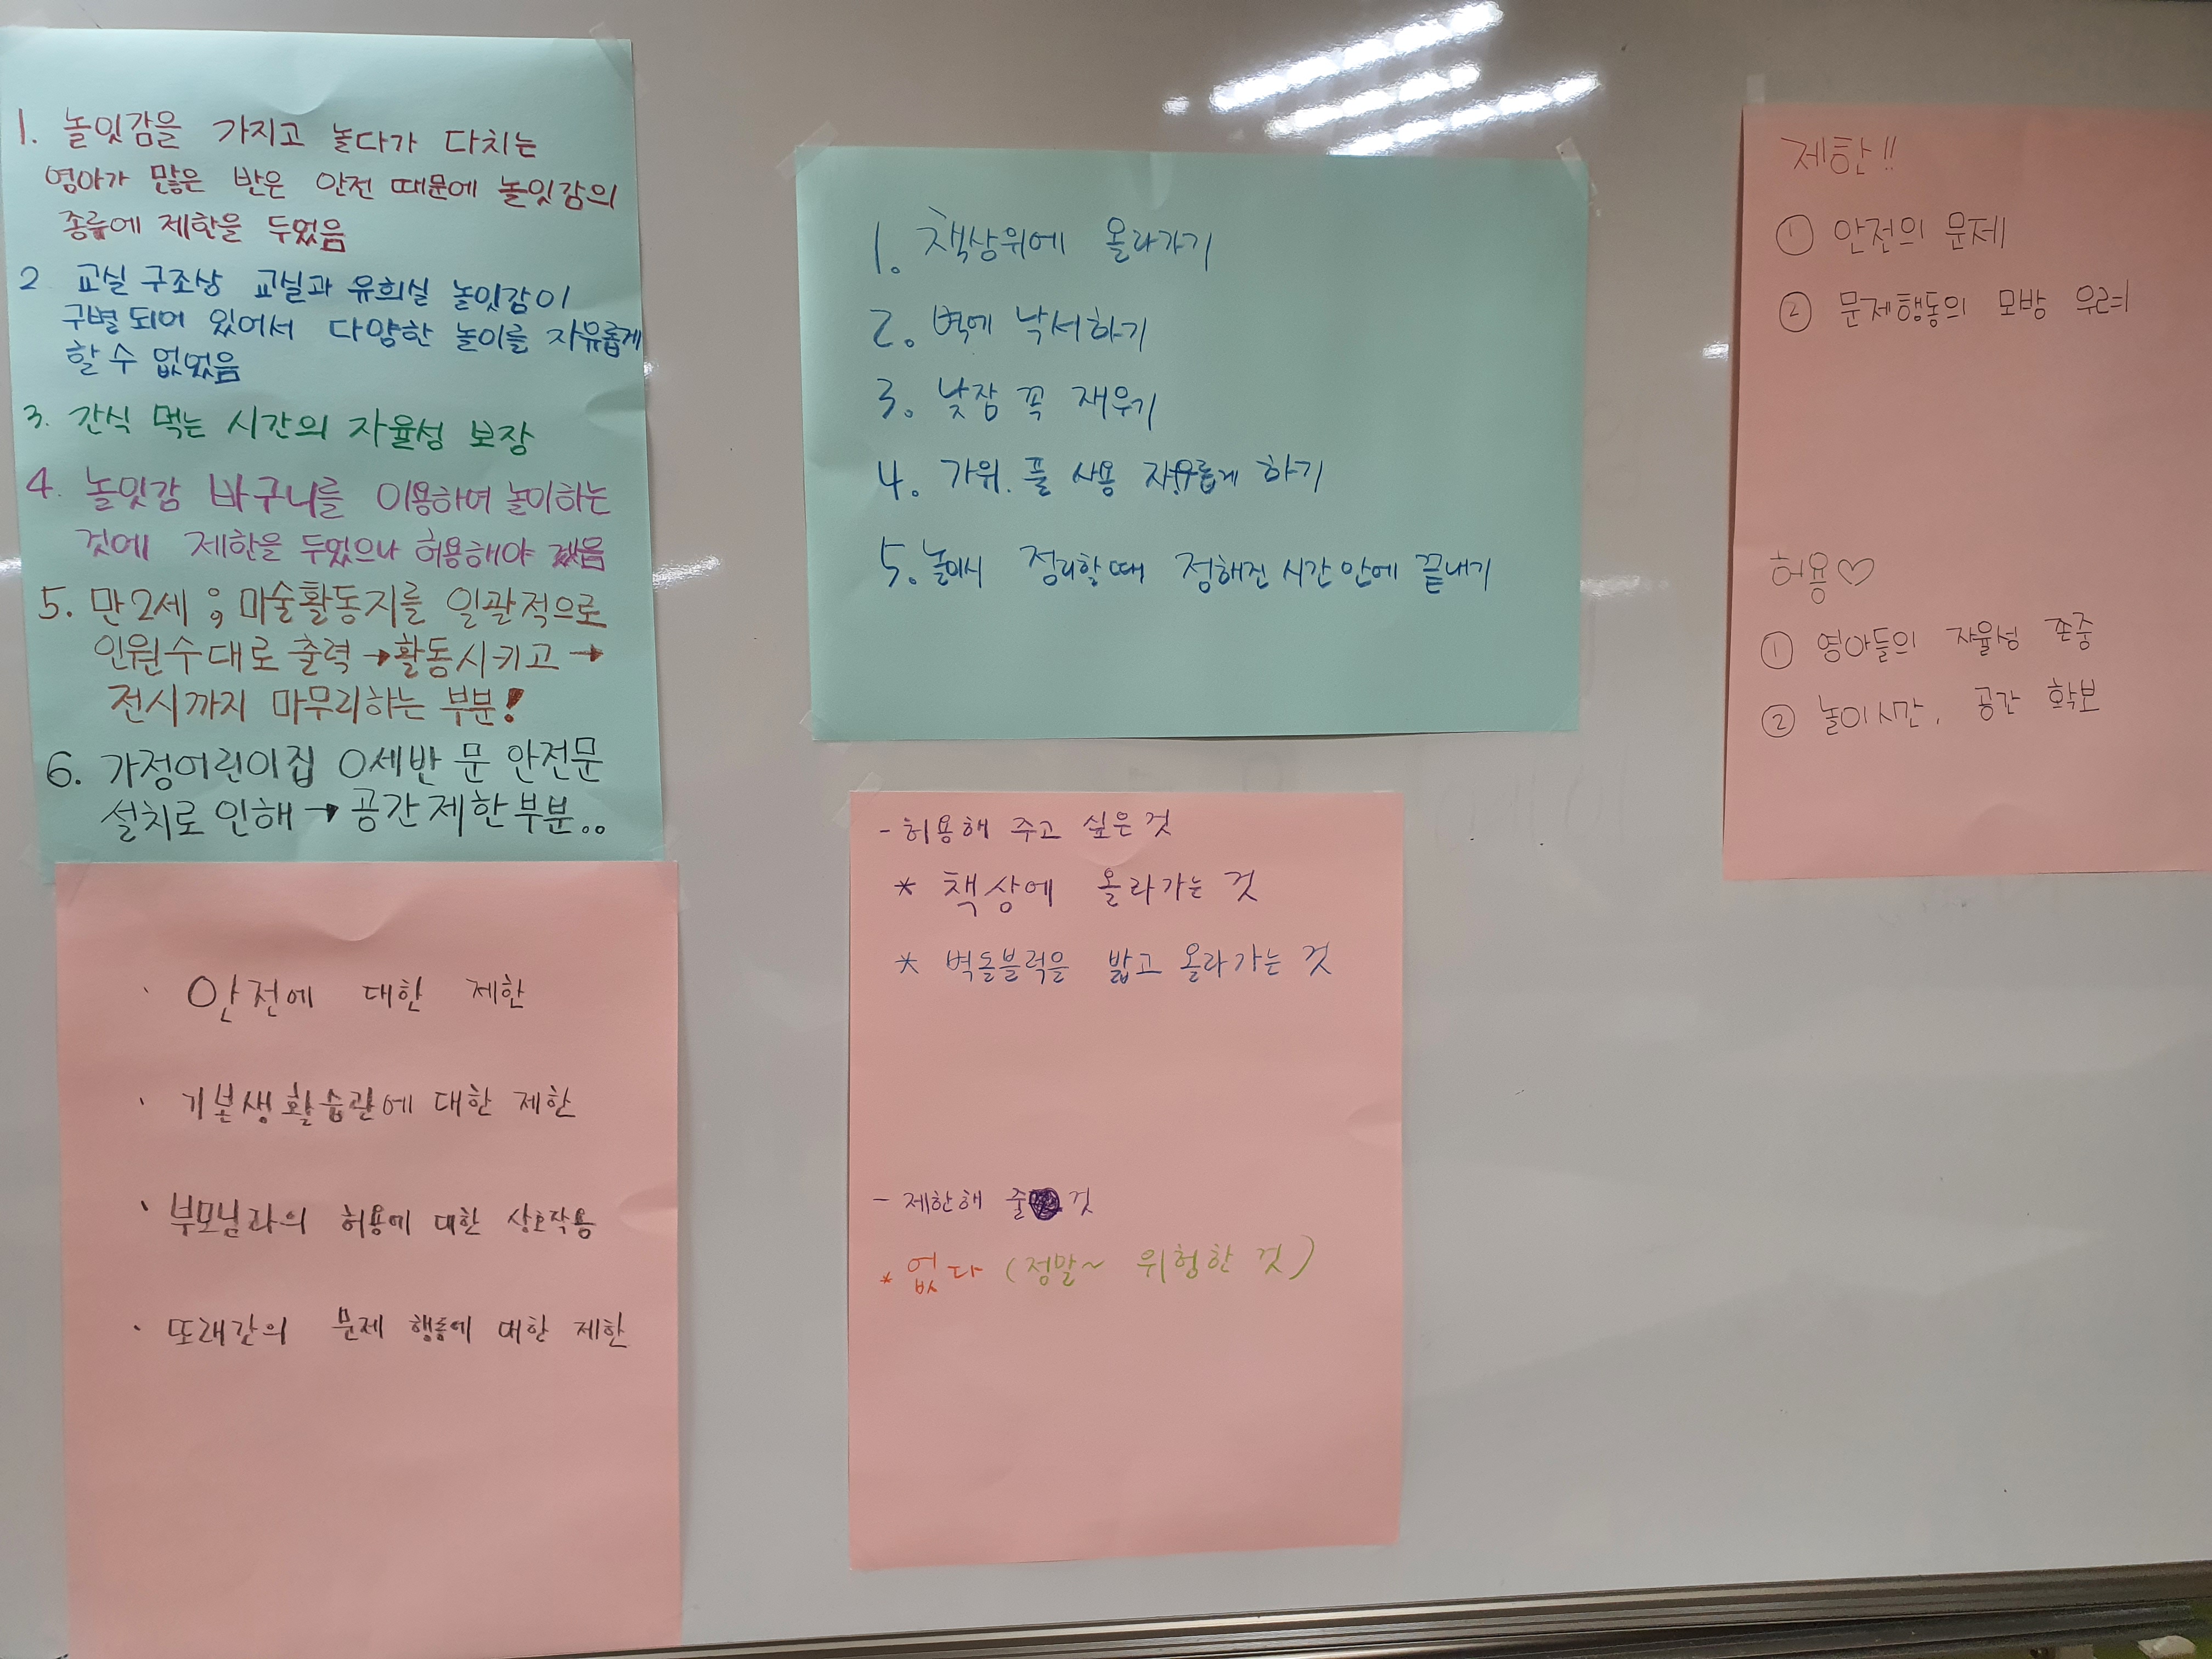 1. 놀잇감을 가지고 놀다가 다치는
영아가 많은 반은 안전 때문에 놀잇감의
종류에 제한을 두었음
2 교실 구조상 교실과 유희실 놀잇감이
구별 되어 있어서 다양한 놀이를 자유롭게
할 수 없었음
3. 간식 먹는 시간의 자율성 보장
4. 놀잇감 바구니를 이용하여 놀이하는
것에 제한을 두었으나 허용해야 겠음
5. 만2세 ; 미술활동지를 일괄적으로
인원수대로 출력 → 활동시키고 →
전시까지 마무리하는 부분!
6. 가정어린이집 0세반 문 안전문
설치로 인해 → 공간제한부분..
· 안전에 대한 제한
· 기본생활습관에 대한 제한
· 부모님과의 허용에 대한 상호작용
· 또래간의 문제 행동에 대한 제한
1. 책상위에 올라가기
2. 벽에 낙서하기
3. 낮잠 꼭 재우기
4. 가위. 풀 사용 자유롭게 하기
5. 놀이시 정리할때 정해진 시간 안에 끝내기
- 허용해 주고 싶은 것
* 책상에 올라가는 것
* 벽돌블럭을 밟고 올라가는 것
- 제한해 줄 것
* 없다 (정말~ 위험한 것)
제한!!
① 안전의 문제
② 문제행동의 모방 우려
허용♡
① 영아들의 자율성 존중
② 놀이시간, 공간 확보